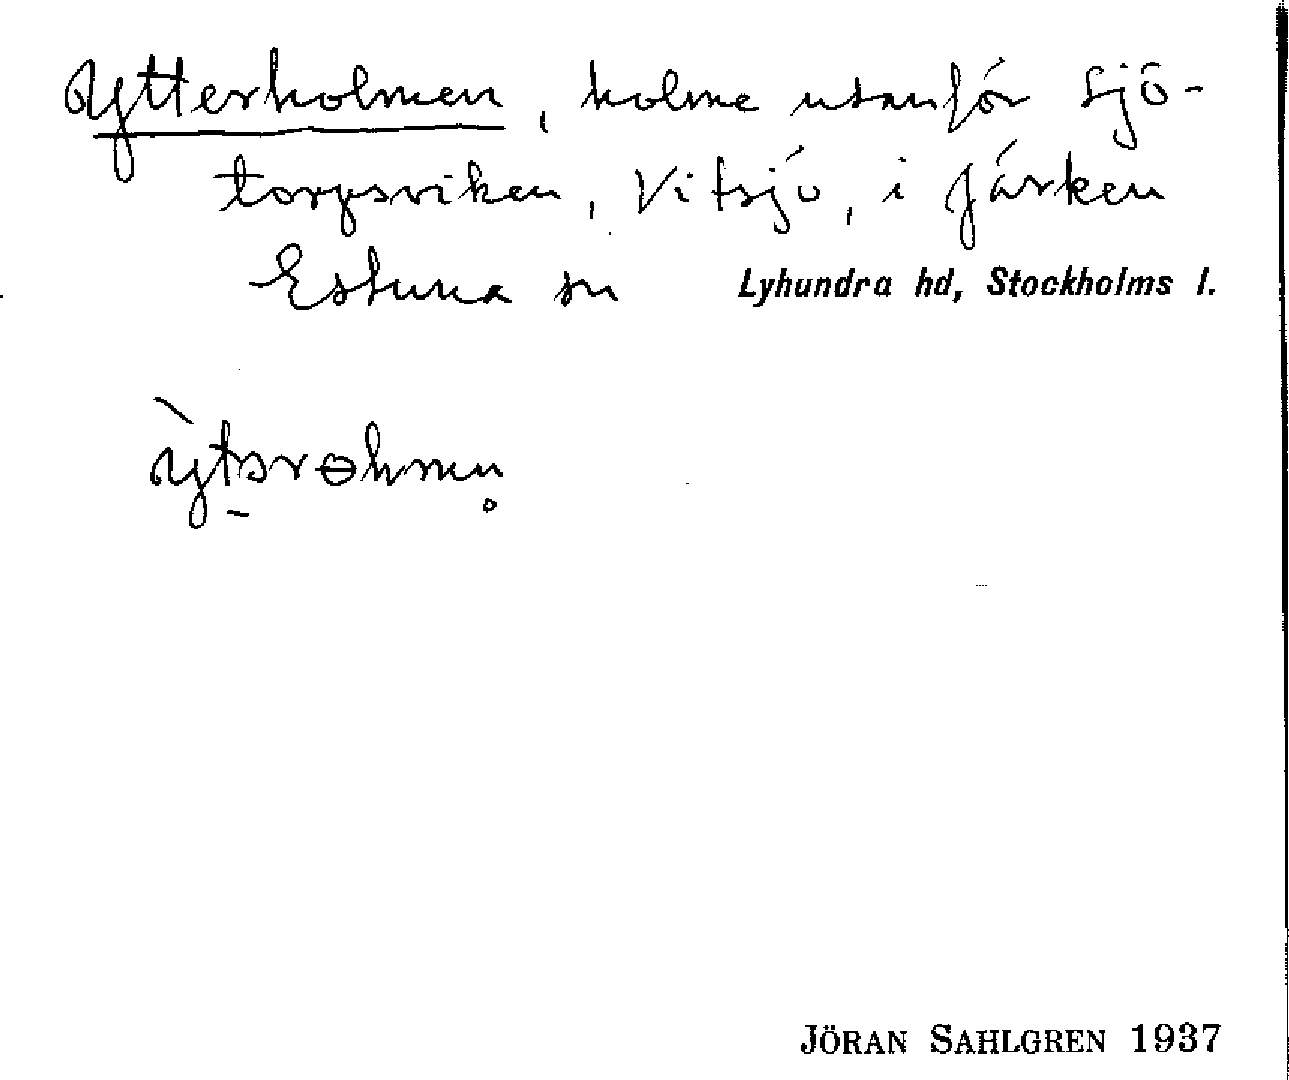 Ytterholmen, holme utanför Sjö-
torpsviken, Vitsjö, i Järken
Estuna sn Lyhundra hd, Stockholms l.
JÖRAN SAHLGREN 1937